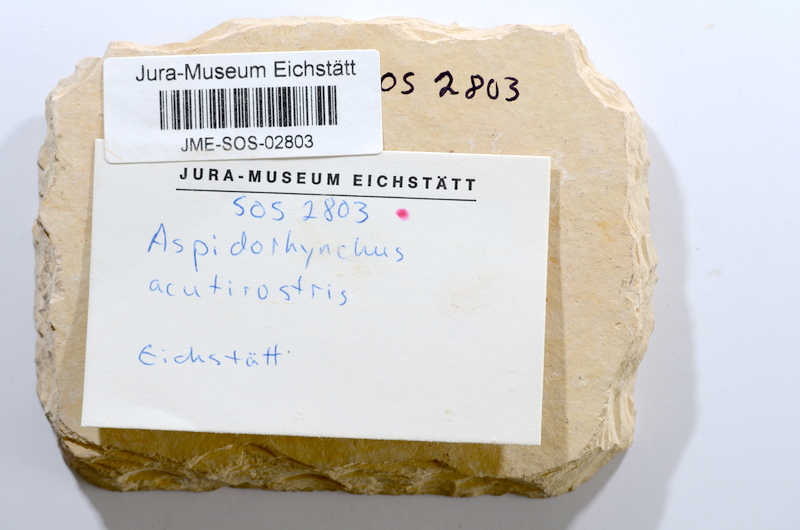 Jura-Museum Eichstätt
JME-SOS-02803
SOS 2803
JURA-MUSEUM EICHSTÄTT
SOS 2803
Aspidorhynchus
acutirostris
Eichstätt